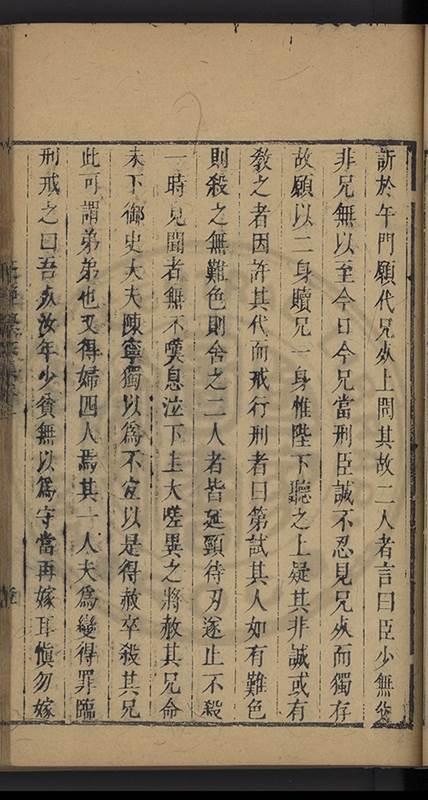 訴於午門願代兄死上問其故二人者言曰臣少無爺
非兄無以至今日今兄當刑臣誠不忍見兄死而獨存
故願以二身贖兄一身惟陛下聽之上疑其非誠或有
教之者因許其代而戒行刑者曰第試其人如有難色
則殺之無難色則舍之二人者皆延頸待刃遂止不殺
一時見聞者無不嘆息泣下上大嗟異之將赦其兄命
未下御史大夫陳寧獨以爲不宜以是得赦卒殺其兄
此可謂弟弟也又得婦四人焉其一人夫爲變得罪臨
刑戒之曰吾死汝年少貧無以爲守當再嫁耳愼勿嫁